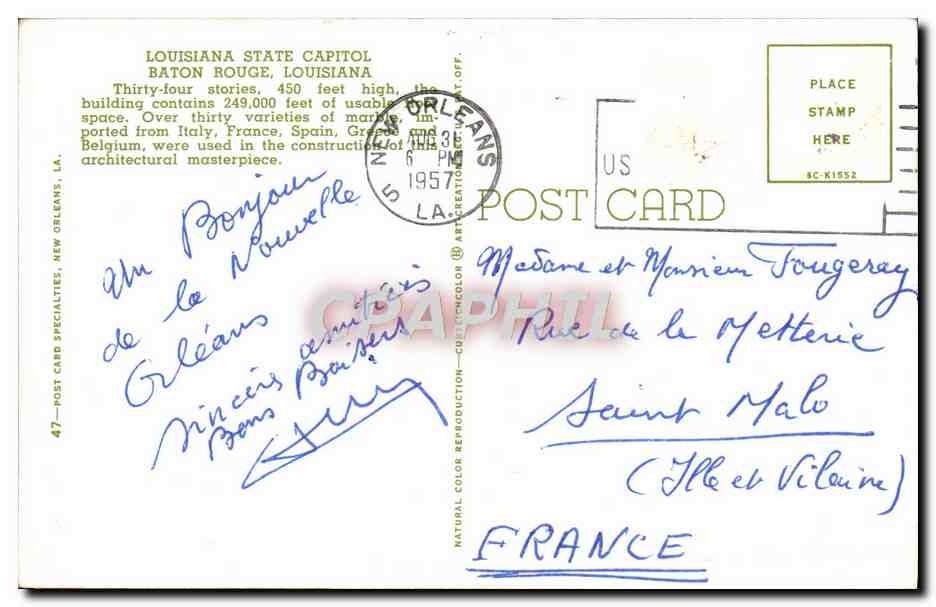 LOUISIANA STATE CAPITOL
BATON ROUGE, LOUISIANA
Thirty-four stories, 450 feet high, the
building contains 249,000 feet of usable floor
space. Over thirty varieties of marble, im-
ported from Italy, France, Spain, Greece and
Belgium, were used in the construction of this
architectural masterpiece.
47—POST CARD SPECIALTIES, NEW ORLEANS, LA.
un Bonjour
de la Nouvelle
Orléans
sincères amitiés
Bons Baisers
NATURAL COLOR REPRODUCTION—CURTEICHCOLOR ® ART-CREATION REG. U.S. PAT. OFF.
NEW ORLEANS
5 LA.
AUG 31
6 PM
1957
US
PLACE
STAMP
HERE
8C-K1552
POST CARD
CPAPHIL
Madame et Monsieur Fougeray
Rue de la Metterie
Saint Malo
(Ille et Vilaine)
FRANCE